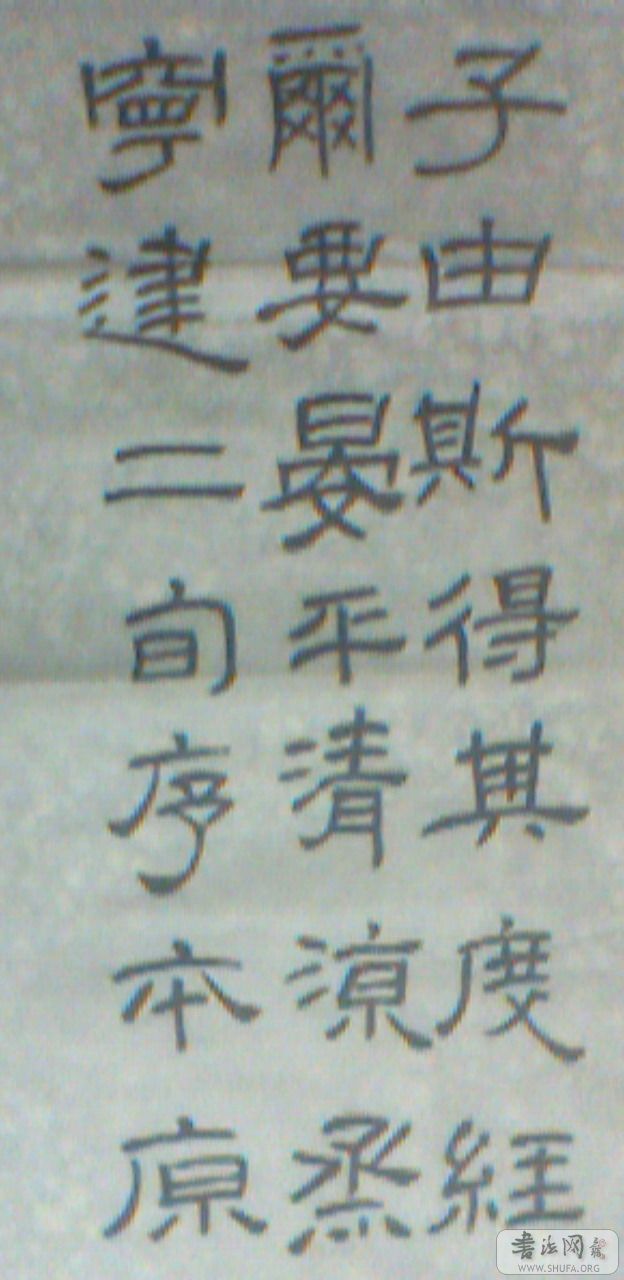 子由斯得其度經
爾要晏平清涼烝
寧建二旬序本原
書法网
WWW.SHUFA.ORG